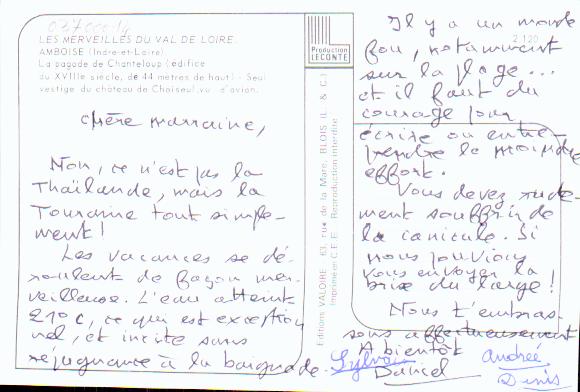 LES MERVEILLES DU VAL DE LOIRE.
AMBOISE (Indre-et-Loire)
La pagode de Chanteloup (édifice
du XVIIIe siècle, de 44 mètres de haut) - Seul
vestige du château de Choiseul, vu d'avion.
Production
LECONTE
2.120
Editions VALOIRE 63, rue de la Mare, BLOIS (L. & C.)
Imprimé en C.E.E. Reproduction interdite
Chère marraine,
Non, ce n'est pas la
Thaïlande, mais la
Touraine tout simple-
ment!
Les vacances se dé-
roulent de façon mer-
veilleuse. L'eau atteint
21°c, ce qui est exception
nel, et incite sans
répugnance à la baignade.
Il y a un monde
fou, notamment
sur la plage...
et il faut du
courage pour
écrire ou entre-
prendre le moindre
effort.
Vous devez rude-
ment souffrir de
la canicule. Si
nous pouvions
vous envoyer la
brise du large!
Nous t'embras-
sons affectueusement
A bientôt
Sylvain Daniel Andrée
Denis